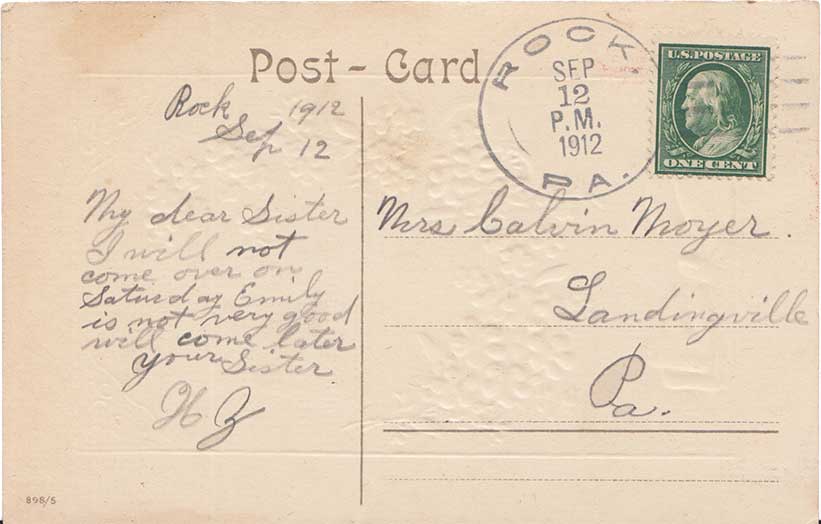 Post-Card
ROCK
SEP
12
P.M.
1912
PA.
U.S. POSTAGE
ONE CENT
Rock 1912
Sep 12
My dear Sister
I will not
come over on
Saturday Emily
is not very good
will come later
your Sister
H Z
Mrs Calvin Moyer.
Landingville
Pa.
898/5